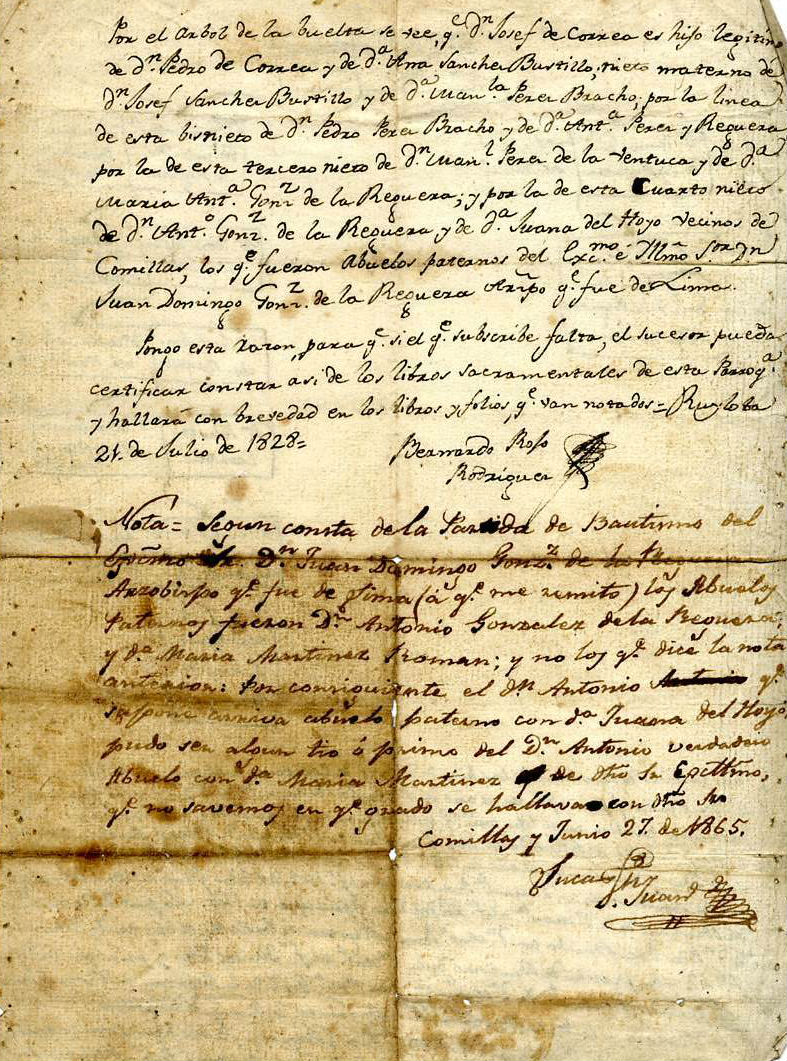 Por el arbol de la buelta se vee, qe. dn. Josef de Correa es hijo legitimo
de dn. Pedro de Correa y de da. Ana Sanchez Bustillo; nieto materno de
dn. Josef Sanchez Bustillo y de da. Manla. Perez Bracho; por la linea
de esta bisnieto de dn. Pedro Perez Bracho y de da. Anta. Perez y Reguera
por la de esta tercero nieto de dn. Manl. Perez de la Ventuca y de da.
Maria Anta. Gonz. de la Reguera; y por la de esta Cuarto nieto
de dn. Anto. Gonz. de la Reguera y de da. Juana del Hoyo vecinos de
Comillas, los qe. fueron Abuelos paternos del Excmo. é Illmo Sor. Dn.
Juan Domingo Gonz. de la Reguera Arzpo qe. fue de Lima.
Pongo esta razon, para qe. si el qe. subscribe falta, el sucesor pueda
certificar constar asi de los libros sacramentales de esta Parroqa.
y hallará con brevedad en los libros y folios, qe. van notados = Ruyloba
21. de Julio de 1828 =
Bernardo Roso
Rodriguez
Nota = Segun consta de la Partida de Bautismo del
Escmo Sr. Dn. Juan Domingo Gonz. de la Reguera
Arzobispo qe. fue de Lima (á qe. me remito) los Abuelos
Paternos fueron Dn. Antonio Gonzalez de la Reguera,
y da. Maria Martinez Roman; y no los qe. dice la nota
anterior: Por consiguiente el dn. Antonio qe.
se pone arriva abuelo paterno con da. Juana del Hoyo,
pudo ser algun tio ó primo del Dn. Antonio verdadero
Abuelo con da. Maria Martinez de dho Sr. Escttmo,
qe. no savemos en qe. grado se hallava con dho Sr.
Comillas y Junio 27. de 1865.
Lucas